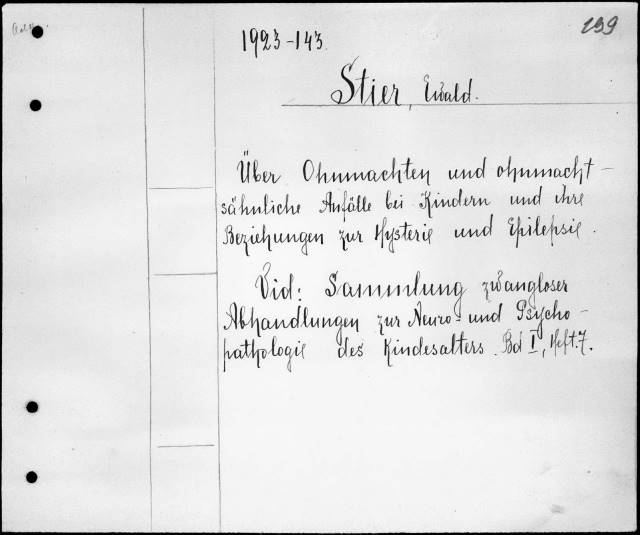 199
1923-143.
Stier, Ewald.
Über Ohnmachten und ohnmacht-
sähnliche Anfälle bei Kindern und ihre
Beziehungen zur Hysterie und Epilepsie.
Vid: Sammlung zwangloser
Abhandlungen zur Neuro- und Psycho-
pathologie des Kindesalters. Bd I, Heft.7.